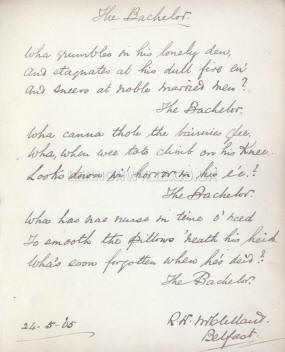 The Bachelor.
Wha grumbles in his lonely den,
And stagnates at his dull fire en'
And sneers at noble married men?
The Bachelor.
Wha canna thole the bairnies glee,
Wha, when wee tots climb on his knee.
Looks down wi' horror in his e'e.?
The Bachelor
Wha has nae nurse in time o' need
To smooth the pillows 'neath his heid
Wha's soon forgotten when he's deid?
The Bachelor.
24-5-05
R. W. McClelland.
Belfast.